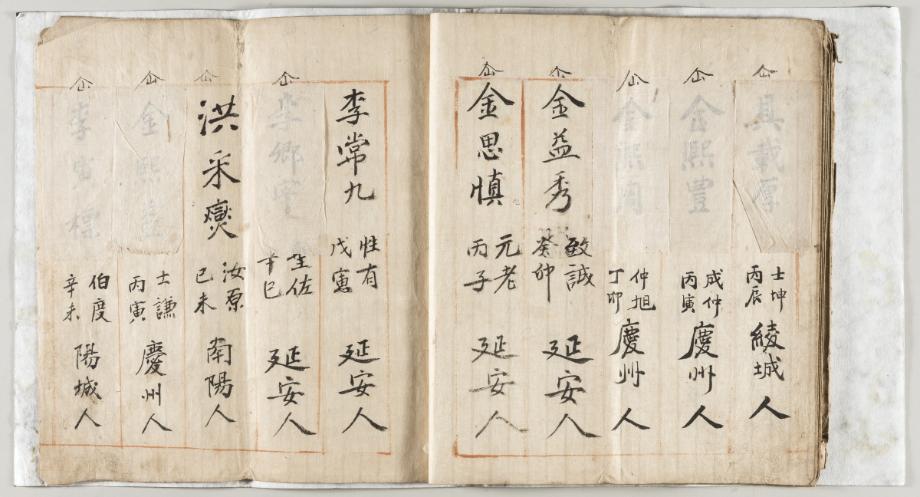 仚 具載厚 士坤 丙辰 綾城人
仚 金熙豊 成仲 丙寅 慶州人
仚 金熙 仲旭 丁卯 慶州人
仚 金益秀 致誠 癸卯 延安人
仚 金思慎 元老 丙子 延安人
李常九 性有 戊寅 延安人
仚 李 佐 辛巳 延安人
仚 洪采燮 汝原 己未 南陽人
仚 金熙益 士謙 丙寅 慶州人
仚 李寅標 伯度 辛未 陽城人